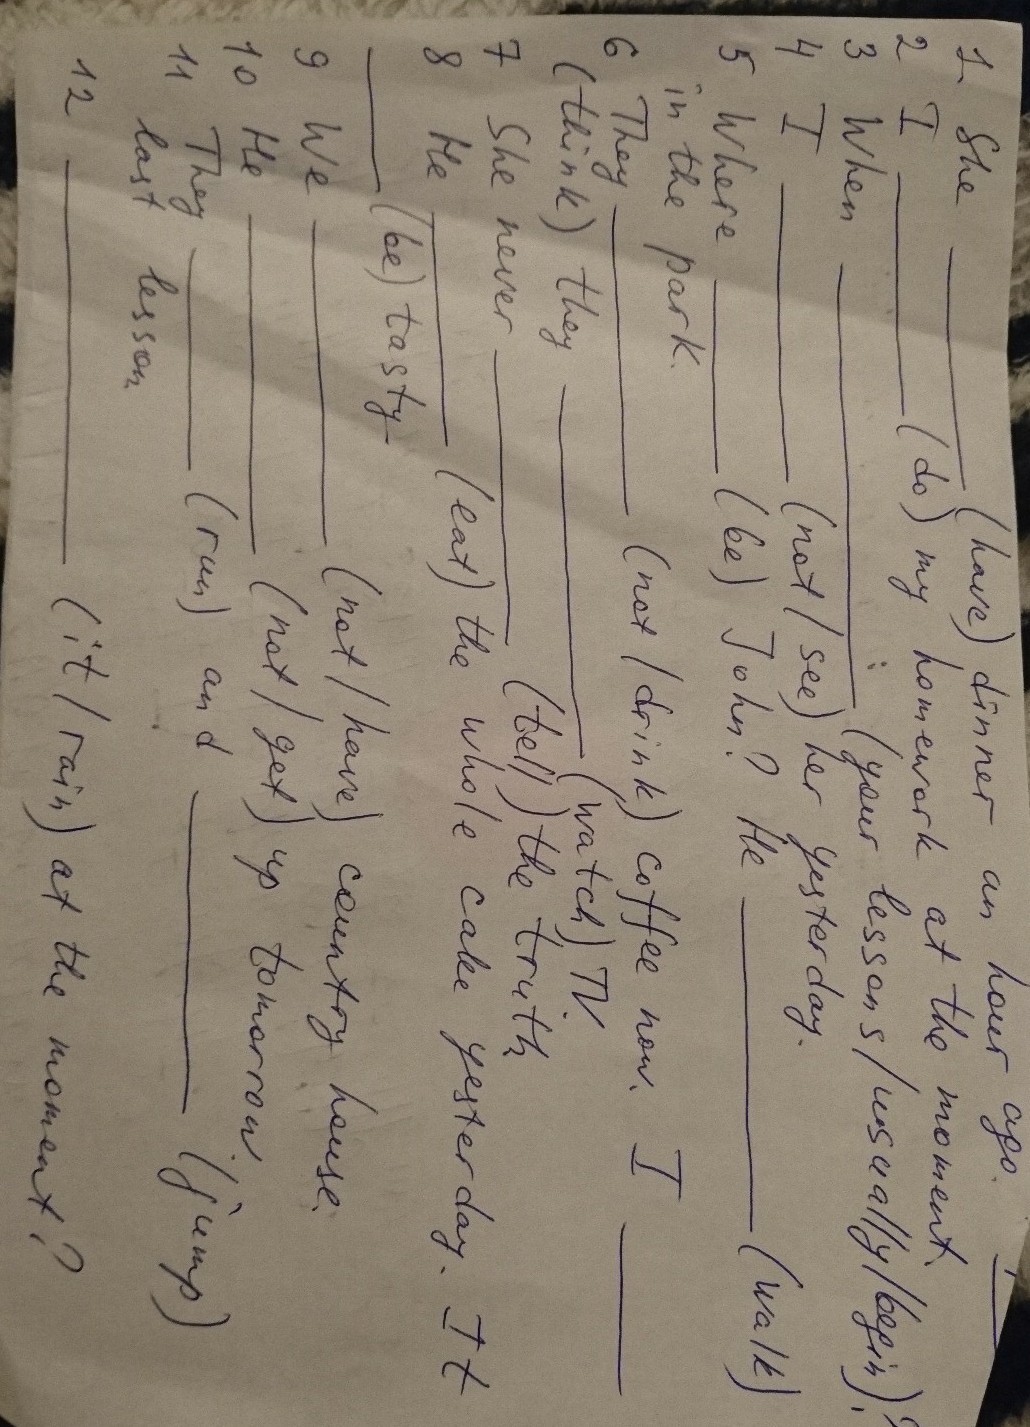 1. She ________ (have) dinner an hour ago.
2 I ________ (do) my homework at the moment.
3 When ________ (your lessons/usually/begin)?
4 I ________ (not/see) her yesterday.
5 Where ________ (be) John? He ________ (walk)
in the park.
6 They ________ (not/drink) coffee now. I ________
(think) they ________ (watch) TV.
7 She never ________ (tell) the truth
8 He ________ (eat) the whole cake yesterday. It
________ (be) tasty.
9 We ________ (not/have) country house.
10 He ________ (not/get) up tomorrow.
11 They ________ (run) and ________ (jump)
last lesson
12 ________ (it/rain) at the moment?